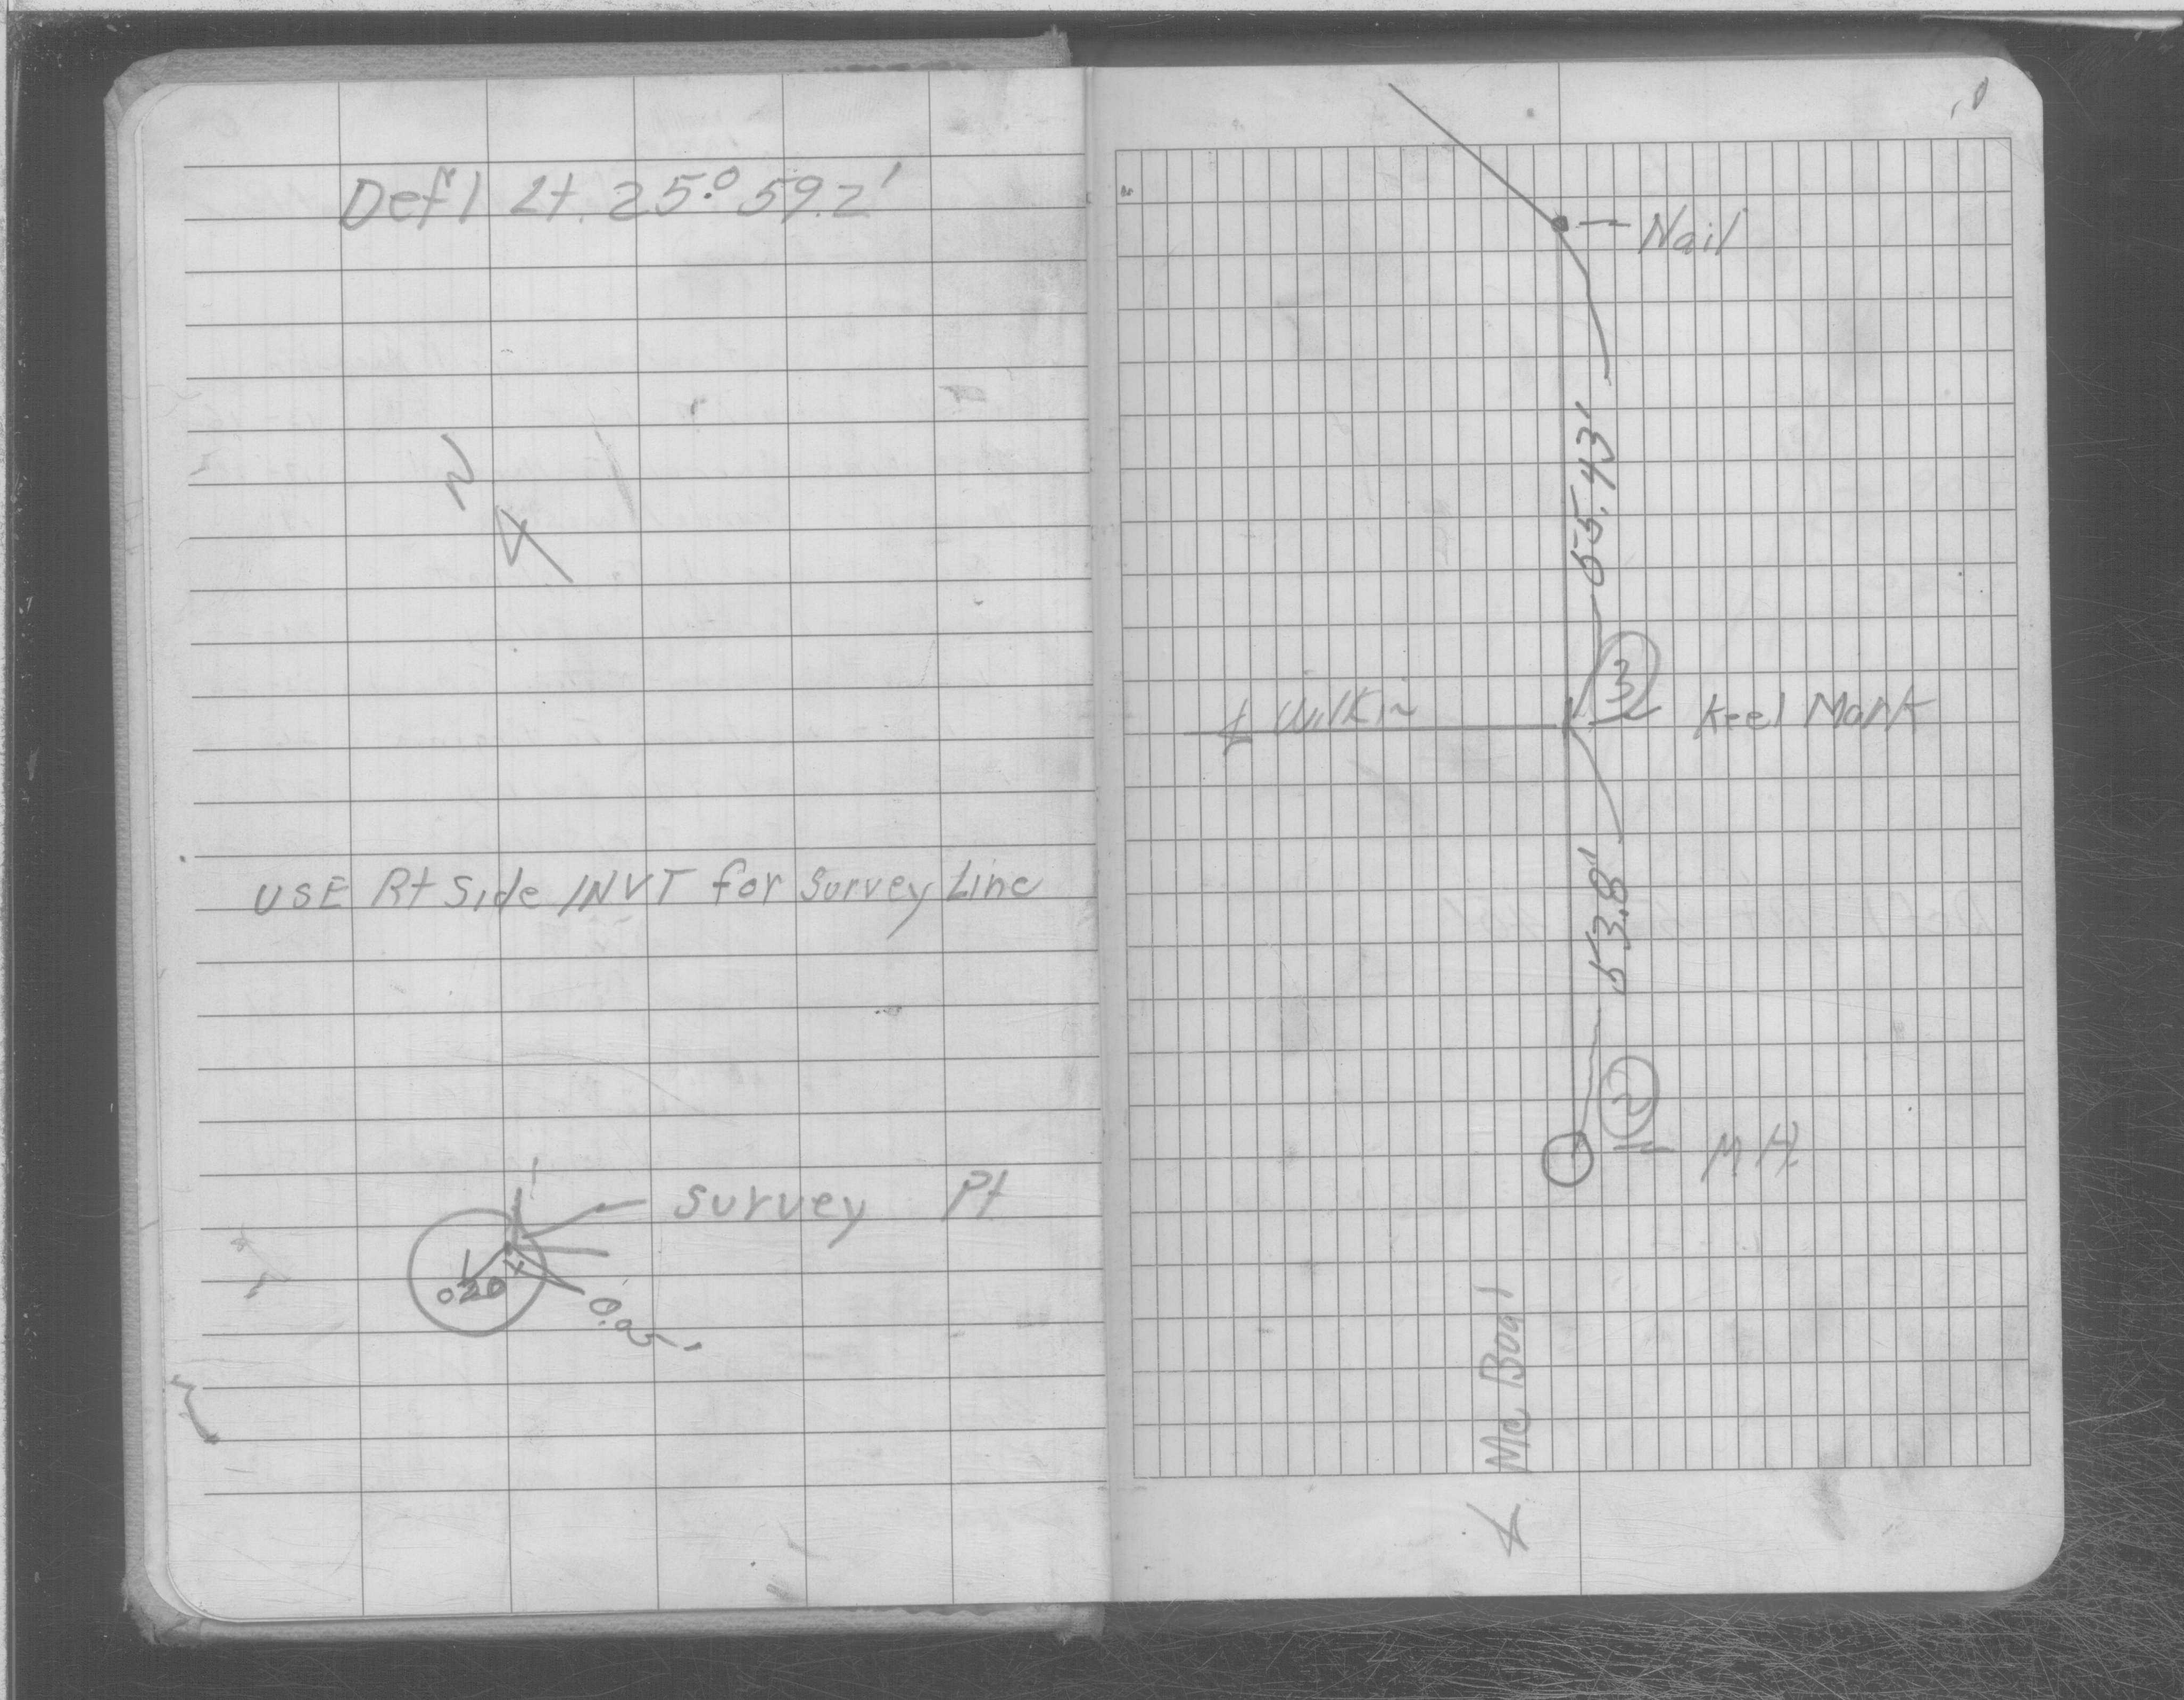 Def'l Lt. 25.° 59.2'
N
USE Rt Side INVT for Survey Line
Survey Pt
0.20
0.05'
Nail
55.43'
3
℄ Wilkin
Keel Mark
53.8'
2
M.H.
℄ Mc Boal